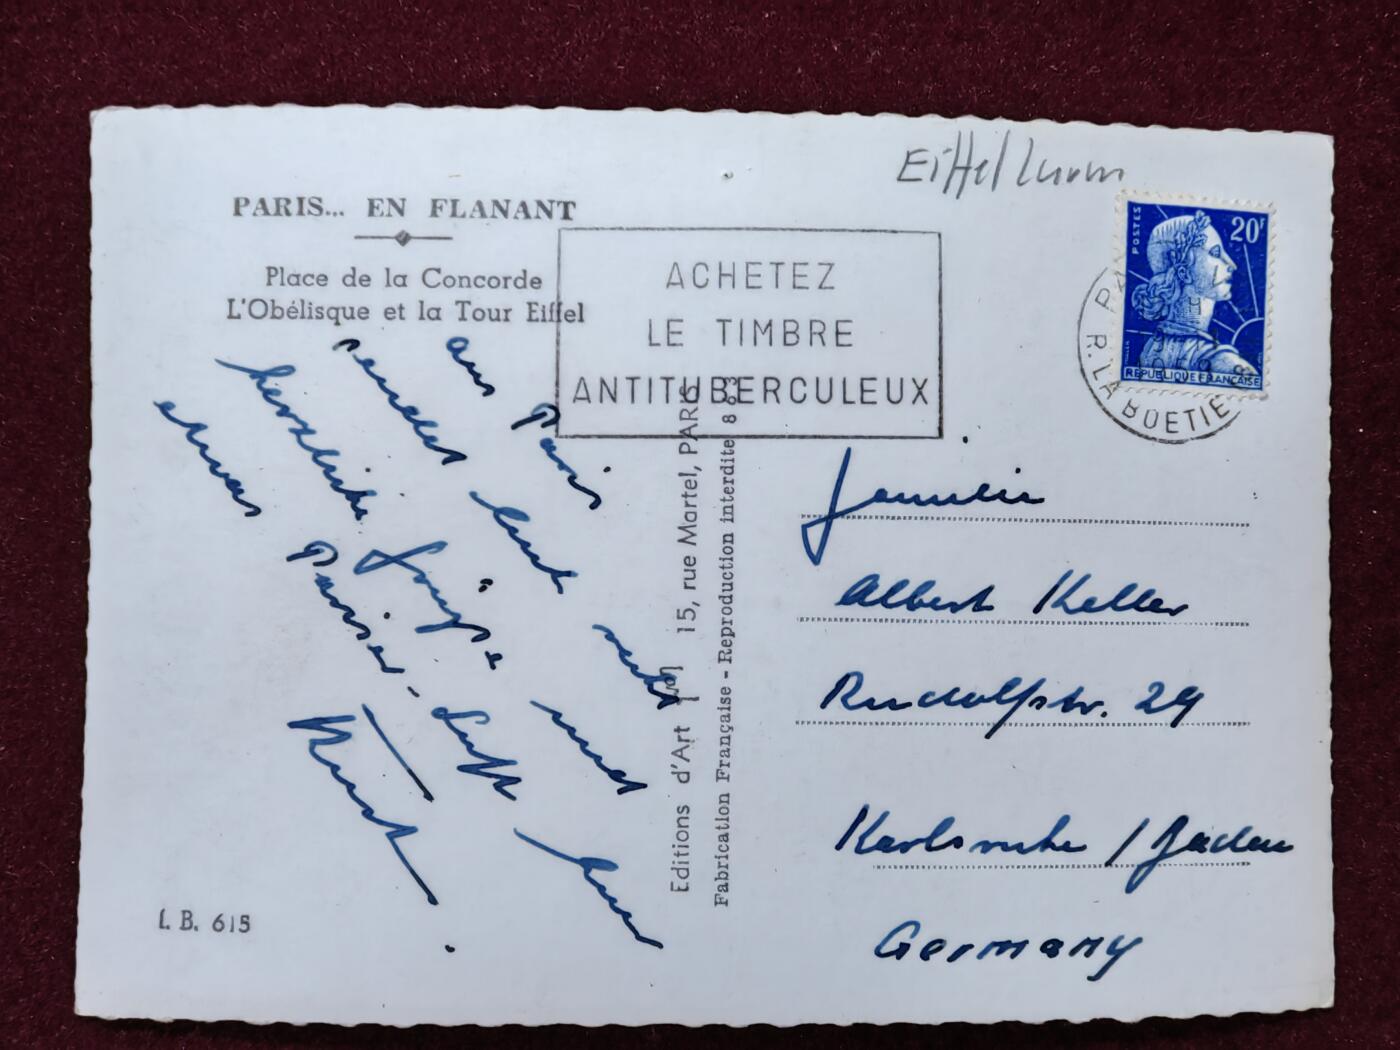 Eiffelturm
PARIS... EN FLANANT
Place de la Concorde
L'Obélisque et la Tour Eiffel
ACHETEZ
LE TIMBRE
ANTITUBERCULEUX
POSTES
20F
REPUBLIQUE FRANÇAISE
R. LA BOETIE
aus Paris
sendet Euch recht
herzliche Grüße und
etwas Pariser-Luft Euer
Kurt.
Editions d'Art 15, rue Martel, PARIS
Fabrication Française - Reproduction interdite 863
Familie
Albert Keller
Rudolfstr. 29
Karlsruhe / Baden
Germany
I. B. 615